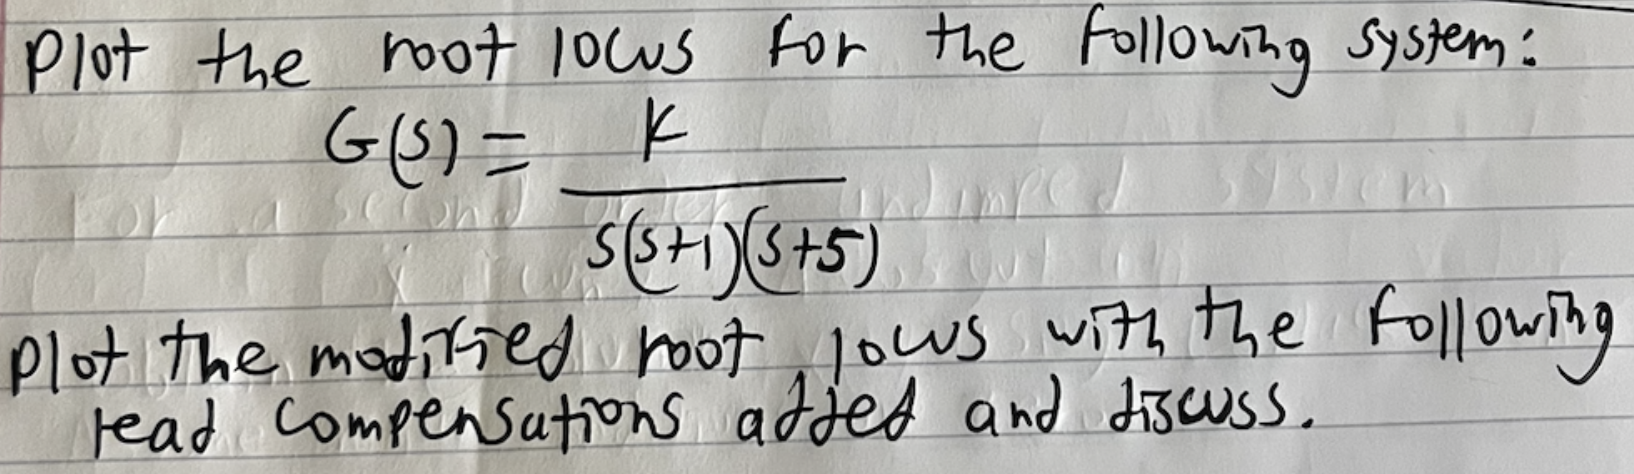 Plot the root locus for the following system:
G(s) = K
s(s+1)(s+5)
For a second order undamped system
plot the modified root locus with the following
lead compensations added and discuss.